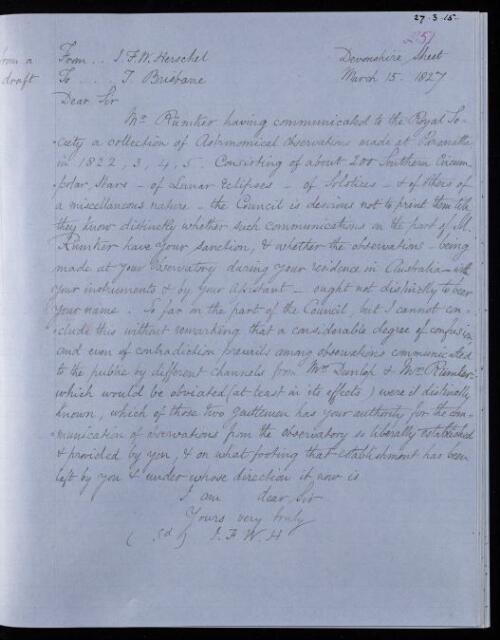 27.3.15
251
from a
draft
From .. J.F.W. Herschel
Devonshire Street
To .... T. Brisbane
March 15. 1827
Dear Sir
Mr. Rümker having communicated to the Royal So-
ciety a collection of Astronomical observations made at Paramatta
in 1822, 3, 4, 5. Consisting of about 200 Southern Circum
polar Stars - of Lunar Eclipses - of Solstices - & of others of
a miscellaneous nature - the Council is desirous not to print them till
they know distinctly whether such communications on the part of M.
Rumker have your sanction, & whether the observations - being
made at your observatory during your residence in Australia - with
your instruments & by your Assistant - ought not distinctly to bear
your name. So far on the part of the Council, but I cannot con-
clude this without remarking that a considerable degree of confusion
and even of contradiction prevails among observations communicated
to the public by different channels from Mr. Dunlop & Mr. Rumker
which would be obviated (at least in its effects) were it distinctly
known, which of those two gentlemen has your authority for the com-
munication of observations from the observatory so liberally established
& provided by you, & on what footing that establishment has been
left by you & under whose direction it now is
I am dear Sir
Yours very truly
( sd ) J. F. W. H